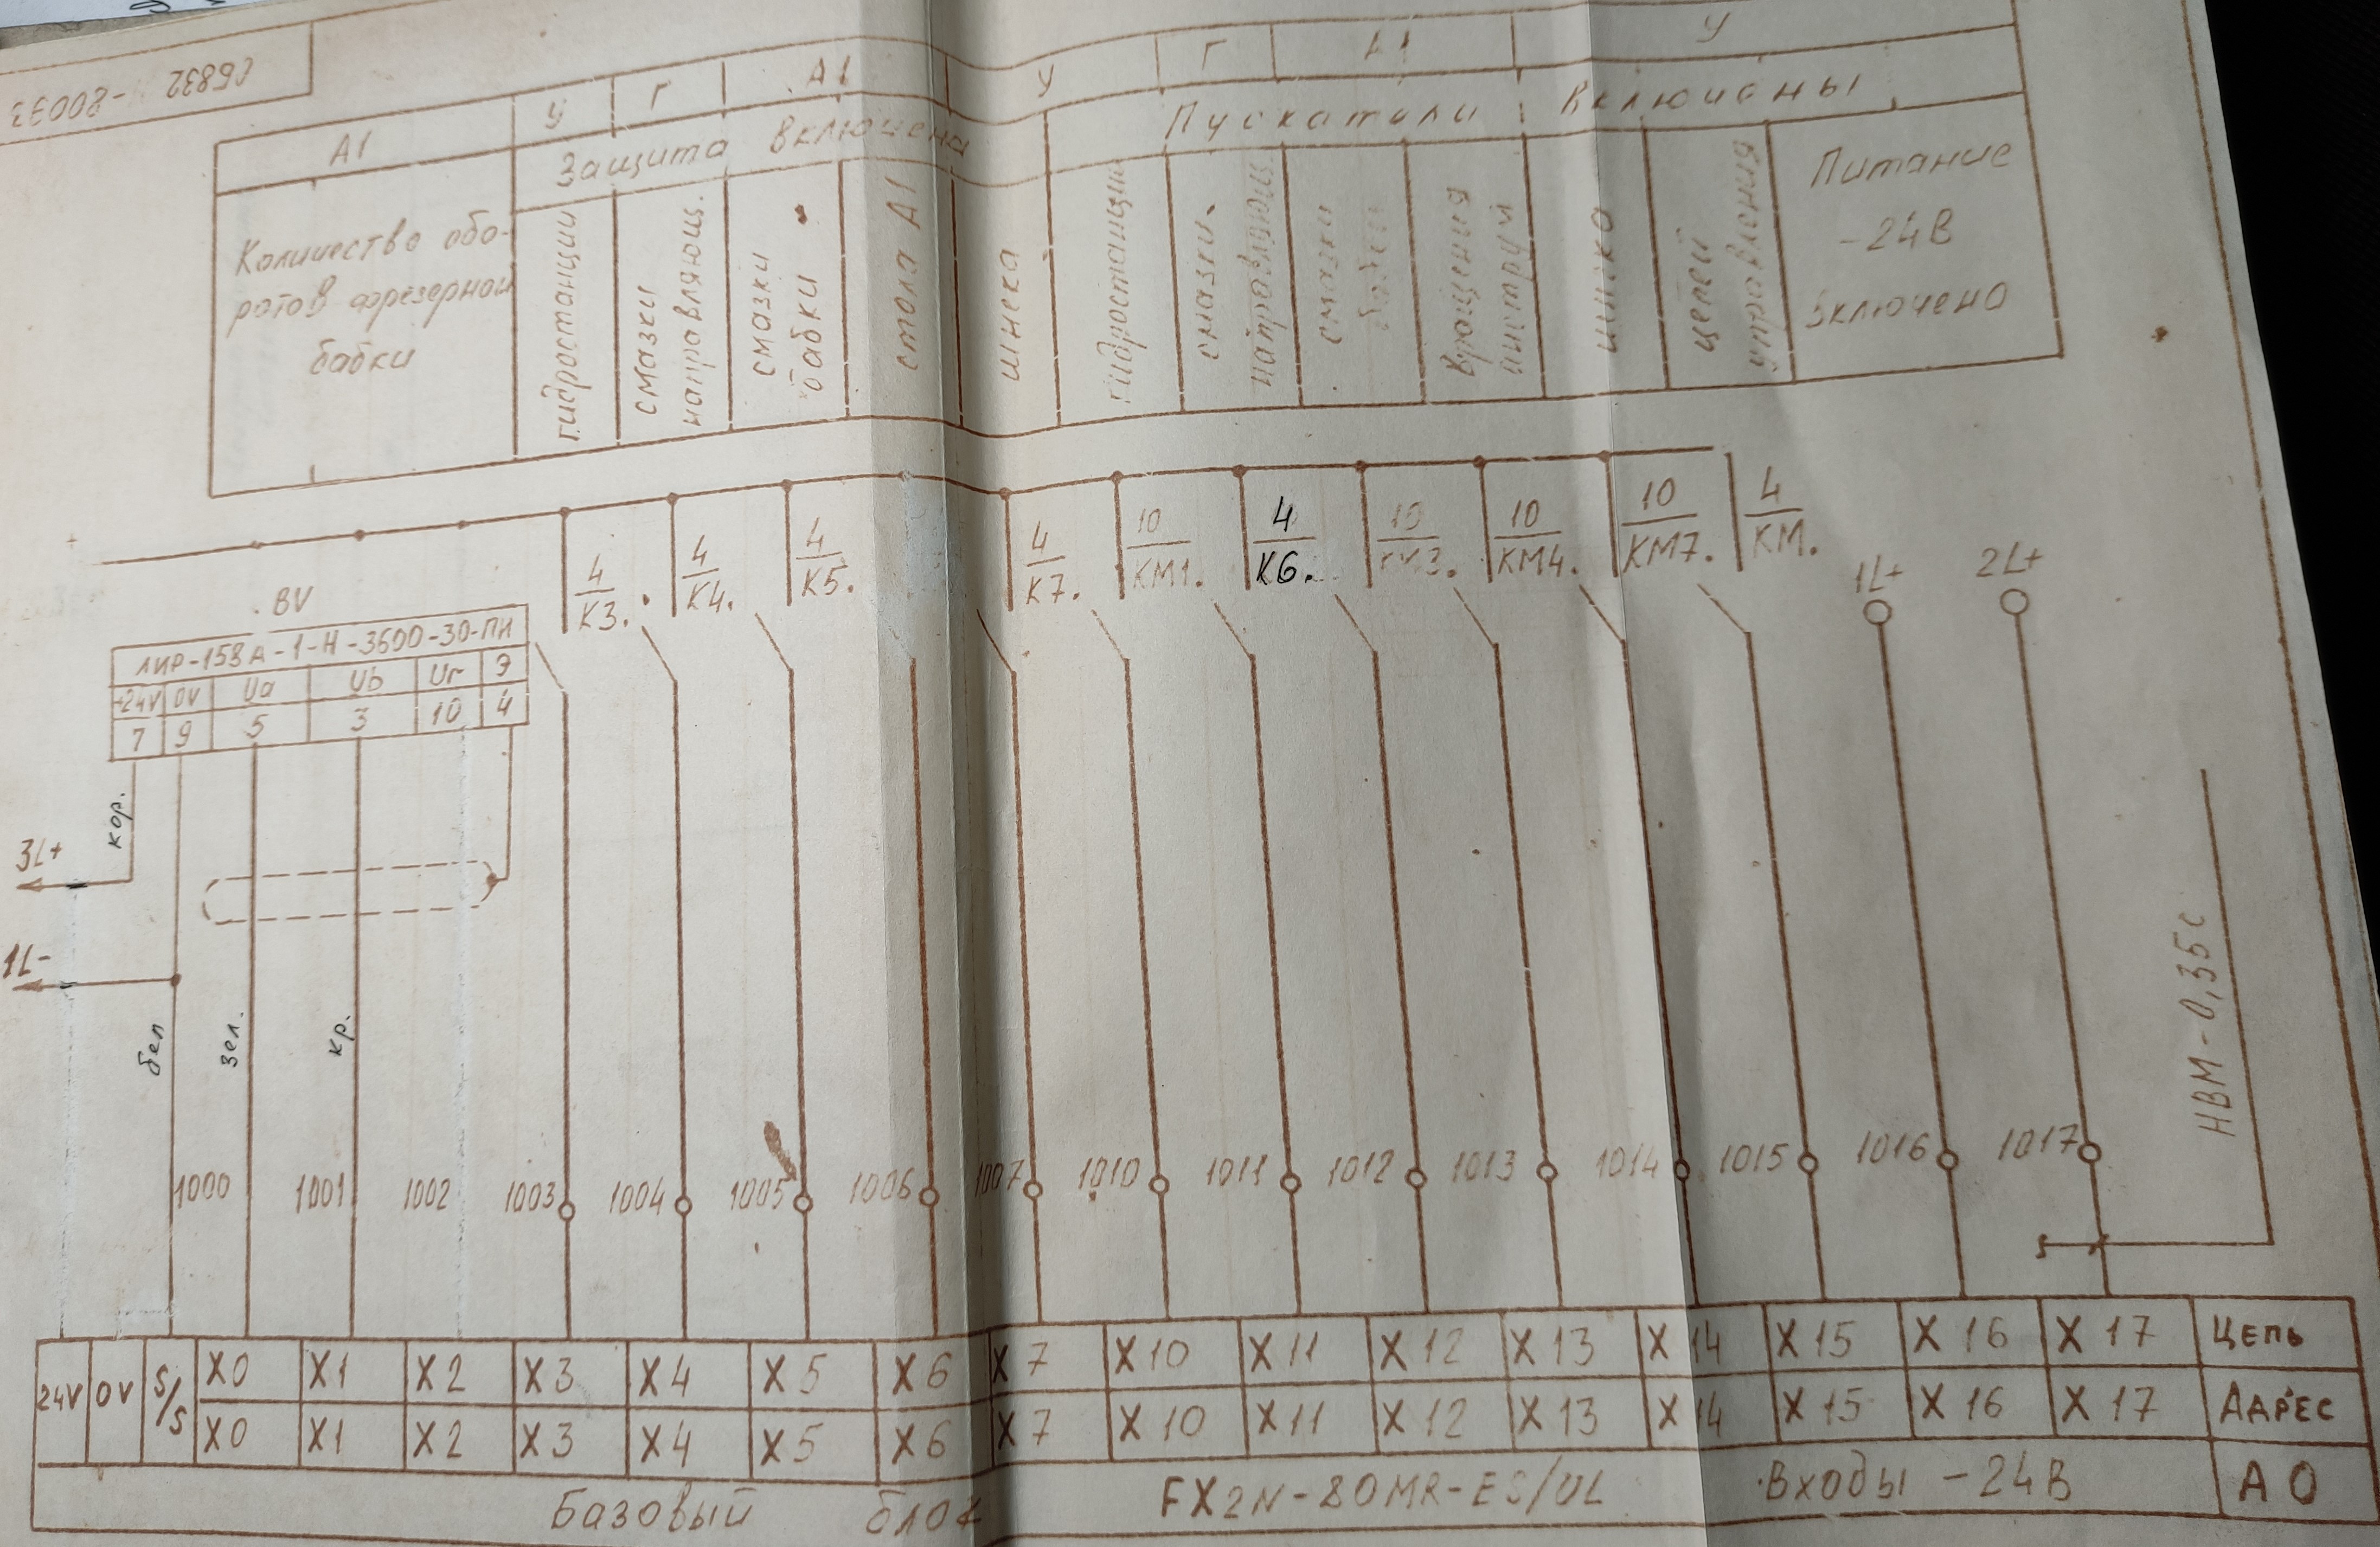 С6832 -80093
А1 У Г А1 У Г А1 У
Защита включена
Пускатели включены
Количество обо-
ротов фрезерной
бабки
гидростанции
смазки
направляющ.
смазки
бабки
стола А1
шнека
гидростанции
смазки
направляющ.
смазки
бабки
вращения
шнека
цепей
управления
Питание
-24В
включено
4
К3.
4
К4.
4
К5.
4
К7.
10
КМ1.
4
К6.
10
10
КМ4.
10
КМ7.
4
КМ.
1L+
2L+
BV
ЛИР-158А-1-Н-3600-30-ПИ
+24V 0V Ua Ub Ur Э
7 9 5 3 10 4
кор.
3L+
1L-
бел
зел.
кр.
НВМ-0,35с
1000 1001 1002 1003 1004 1005 1006 1007 1010 1011 1012 1013 1014 1015 1016 1017
24V 0V S/S X0 X1 X2 X3 X4 X5 X6 X7 X10 X11 X12 X13 X14 X15 X16 X17 Цепь
X0 X1 X2 X3 X4 X5 X6 X7 X10 X11 X12 X13 X14 X15 X16 X17 Адрес
Базовый блок FX2N-80MR-ES/UL Входы -24В А0